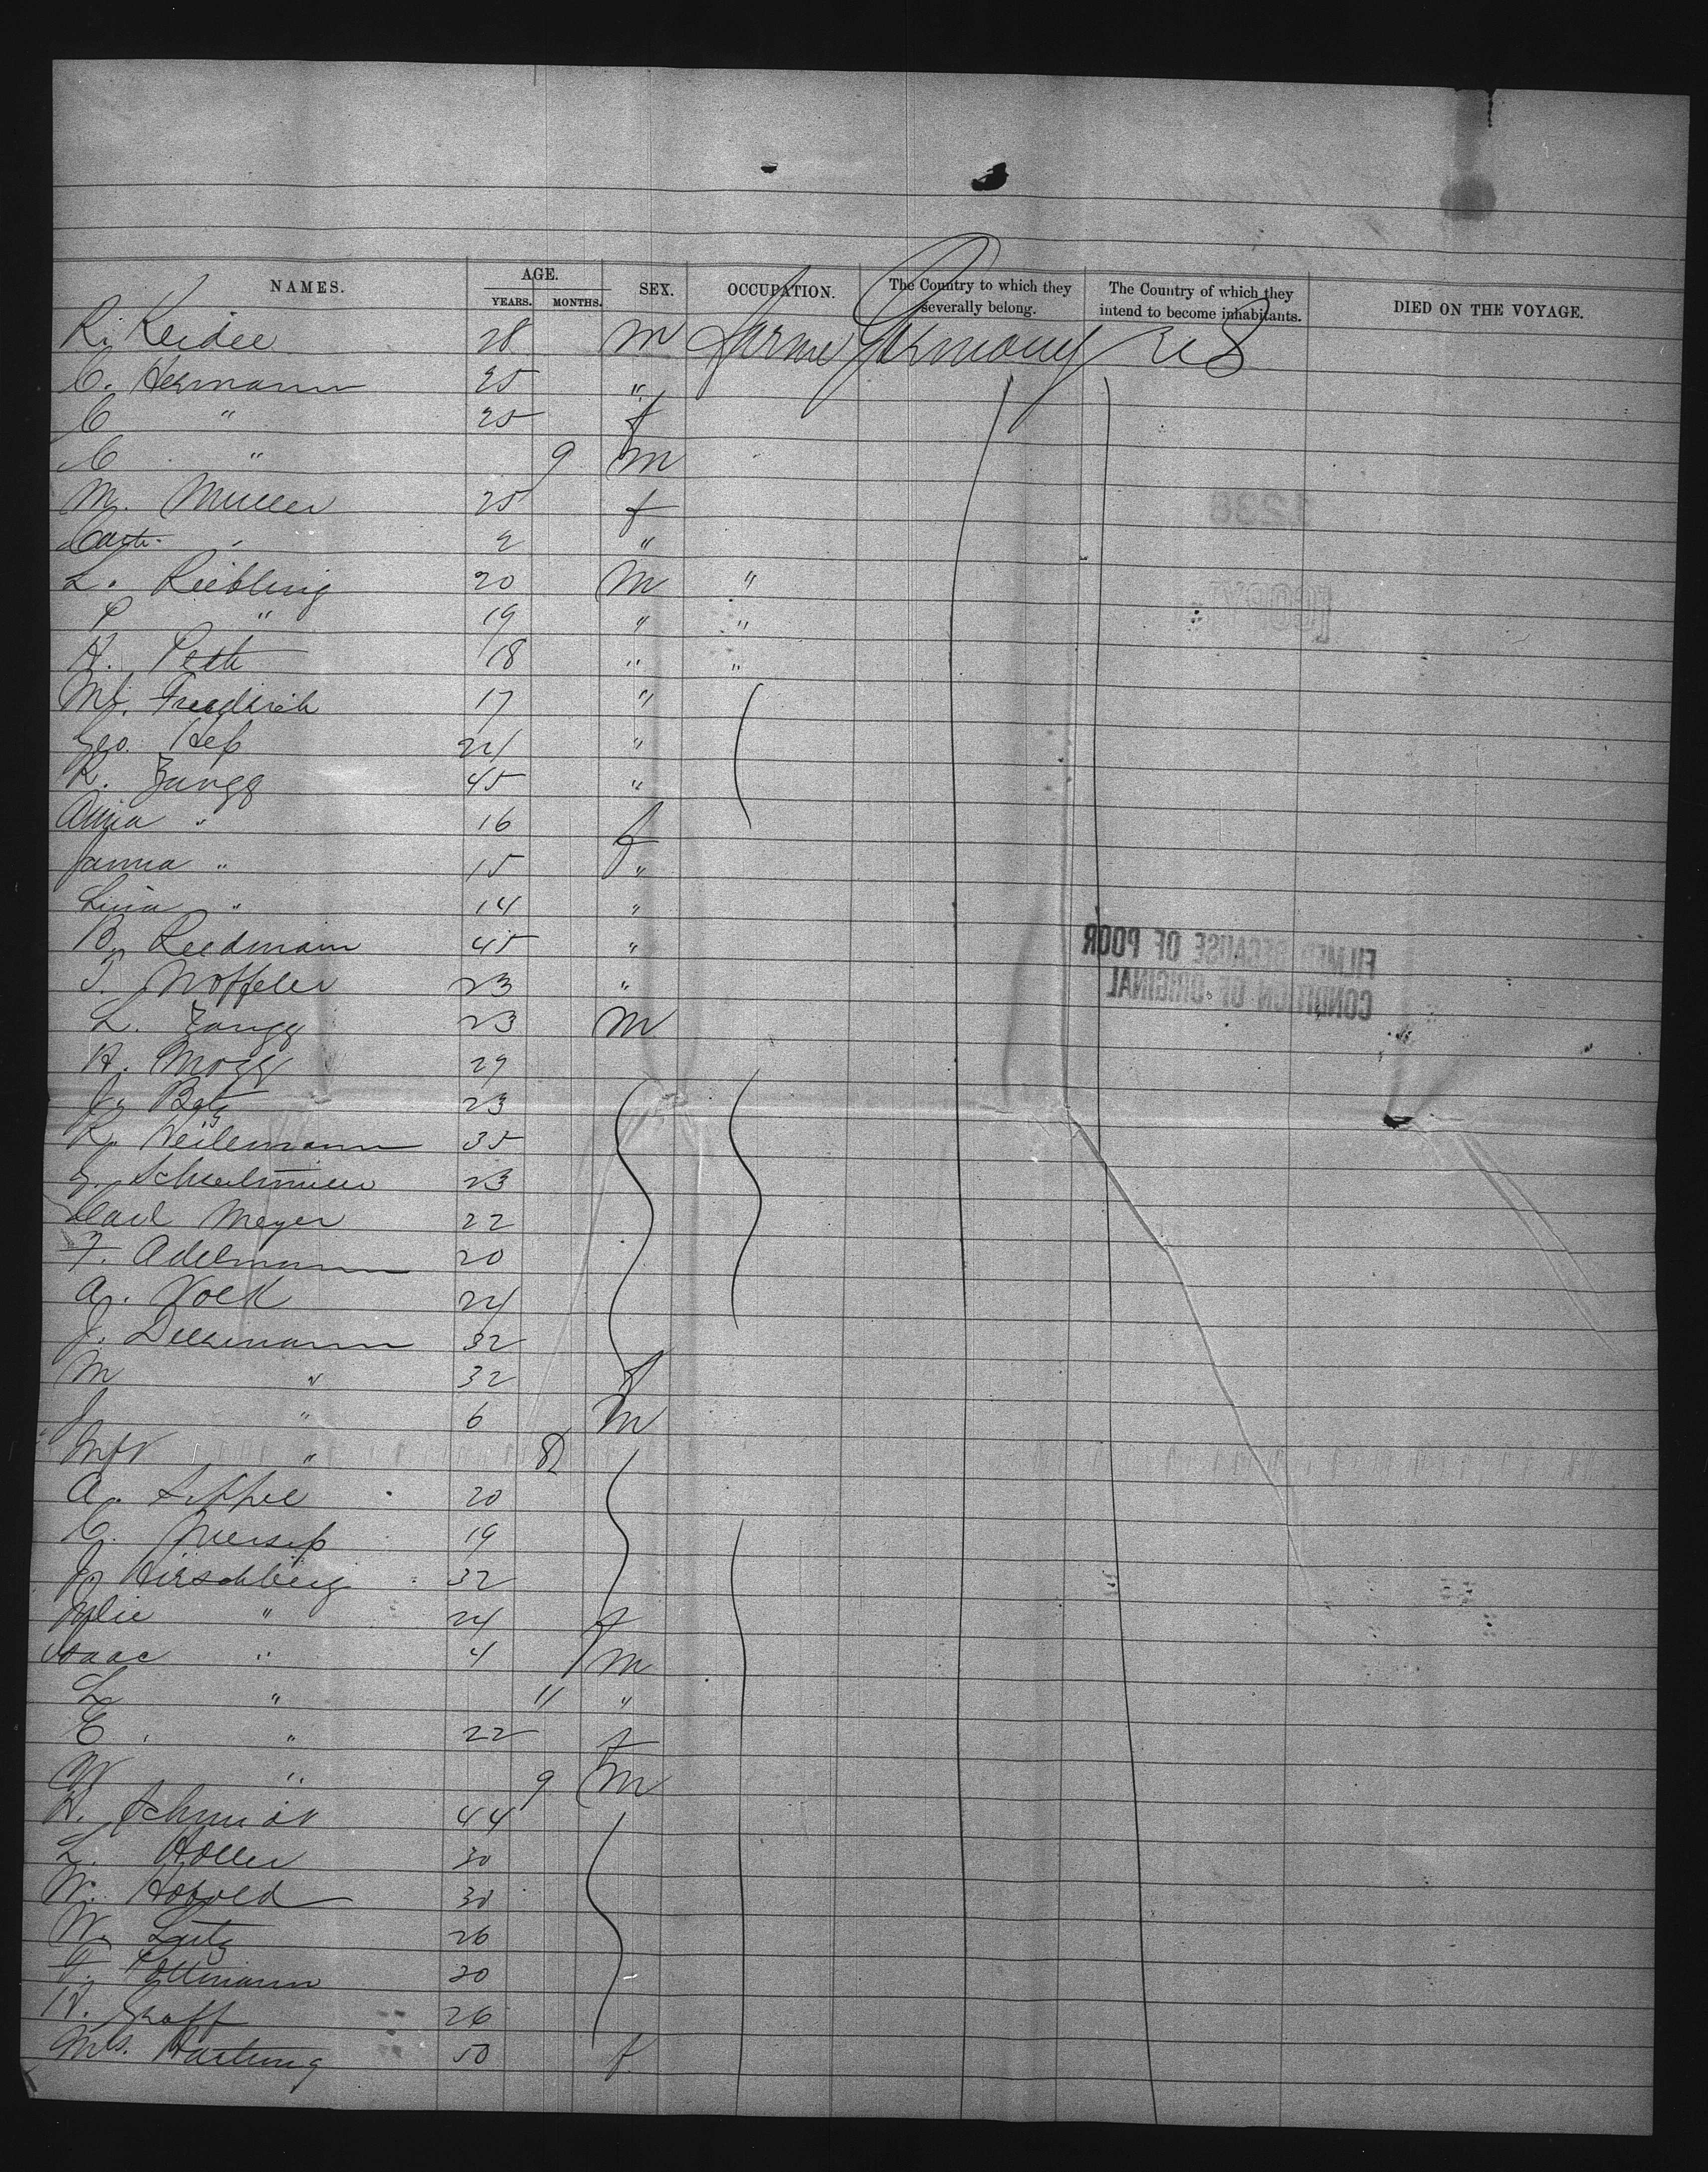 NAMES. AGE. SEX. OCCUPATION. The Country to which they severally belong. The Country of which they intend to become inhabitants. DIED ON THE VOYAGE.
YEARS. MONTHS.
R. Keidel 28 m Farmer Germany U S
C. Hermann 25 "
C " 25 f
C " 9 m
M. Muller 25 f
Cath. " 2 "
L. Reebling 20 m "
P " 19 " "
H. Peth 18 " "
M. Friedrich 17 "
Geo. Heß 24 "
R. Zangg 45 "
Anna " 16 f
Fanna " 15 "
Lina " 14 "
B. Reedmain 45 "
T. Noffeler 23 "
L. Zangg 23 m
H. Mogg 29
J. Betz 23
R. Weilemann 35
23
Carl Meyer 22
F. Adelmann 20
A. Volk 24
J. Diekmann 32
M " 32 f
J " 6 m
" 8
A. Sippel 20
C. 19
J. Hirschberg 32
Julie " 24 f
Isaac " 4 m
L " 11 "
E. " 22 f
W " 9 m
H. Schmidt 44
L. Holler 30
W. Hobold 30
W. Lutz 26
F. Pollmann 30
H. Graff 26
Ms. Hartung 50 f
1238
[COPY]
FILMED BECAUSE OF POOR
CONDITION OF ORIGINAL